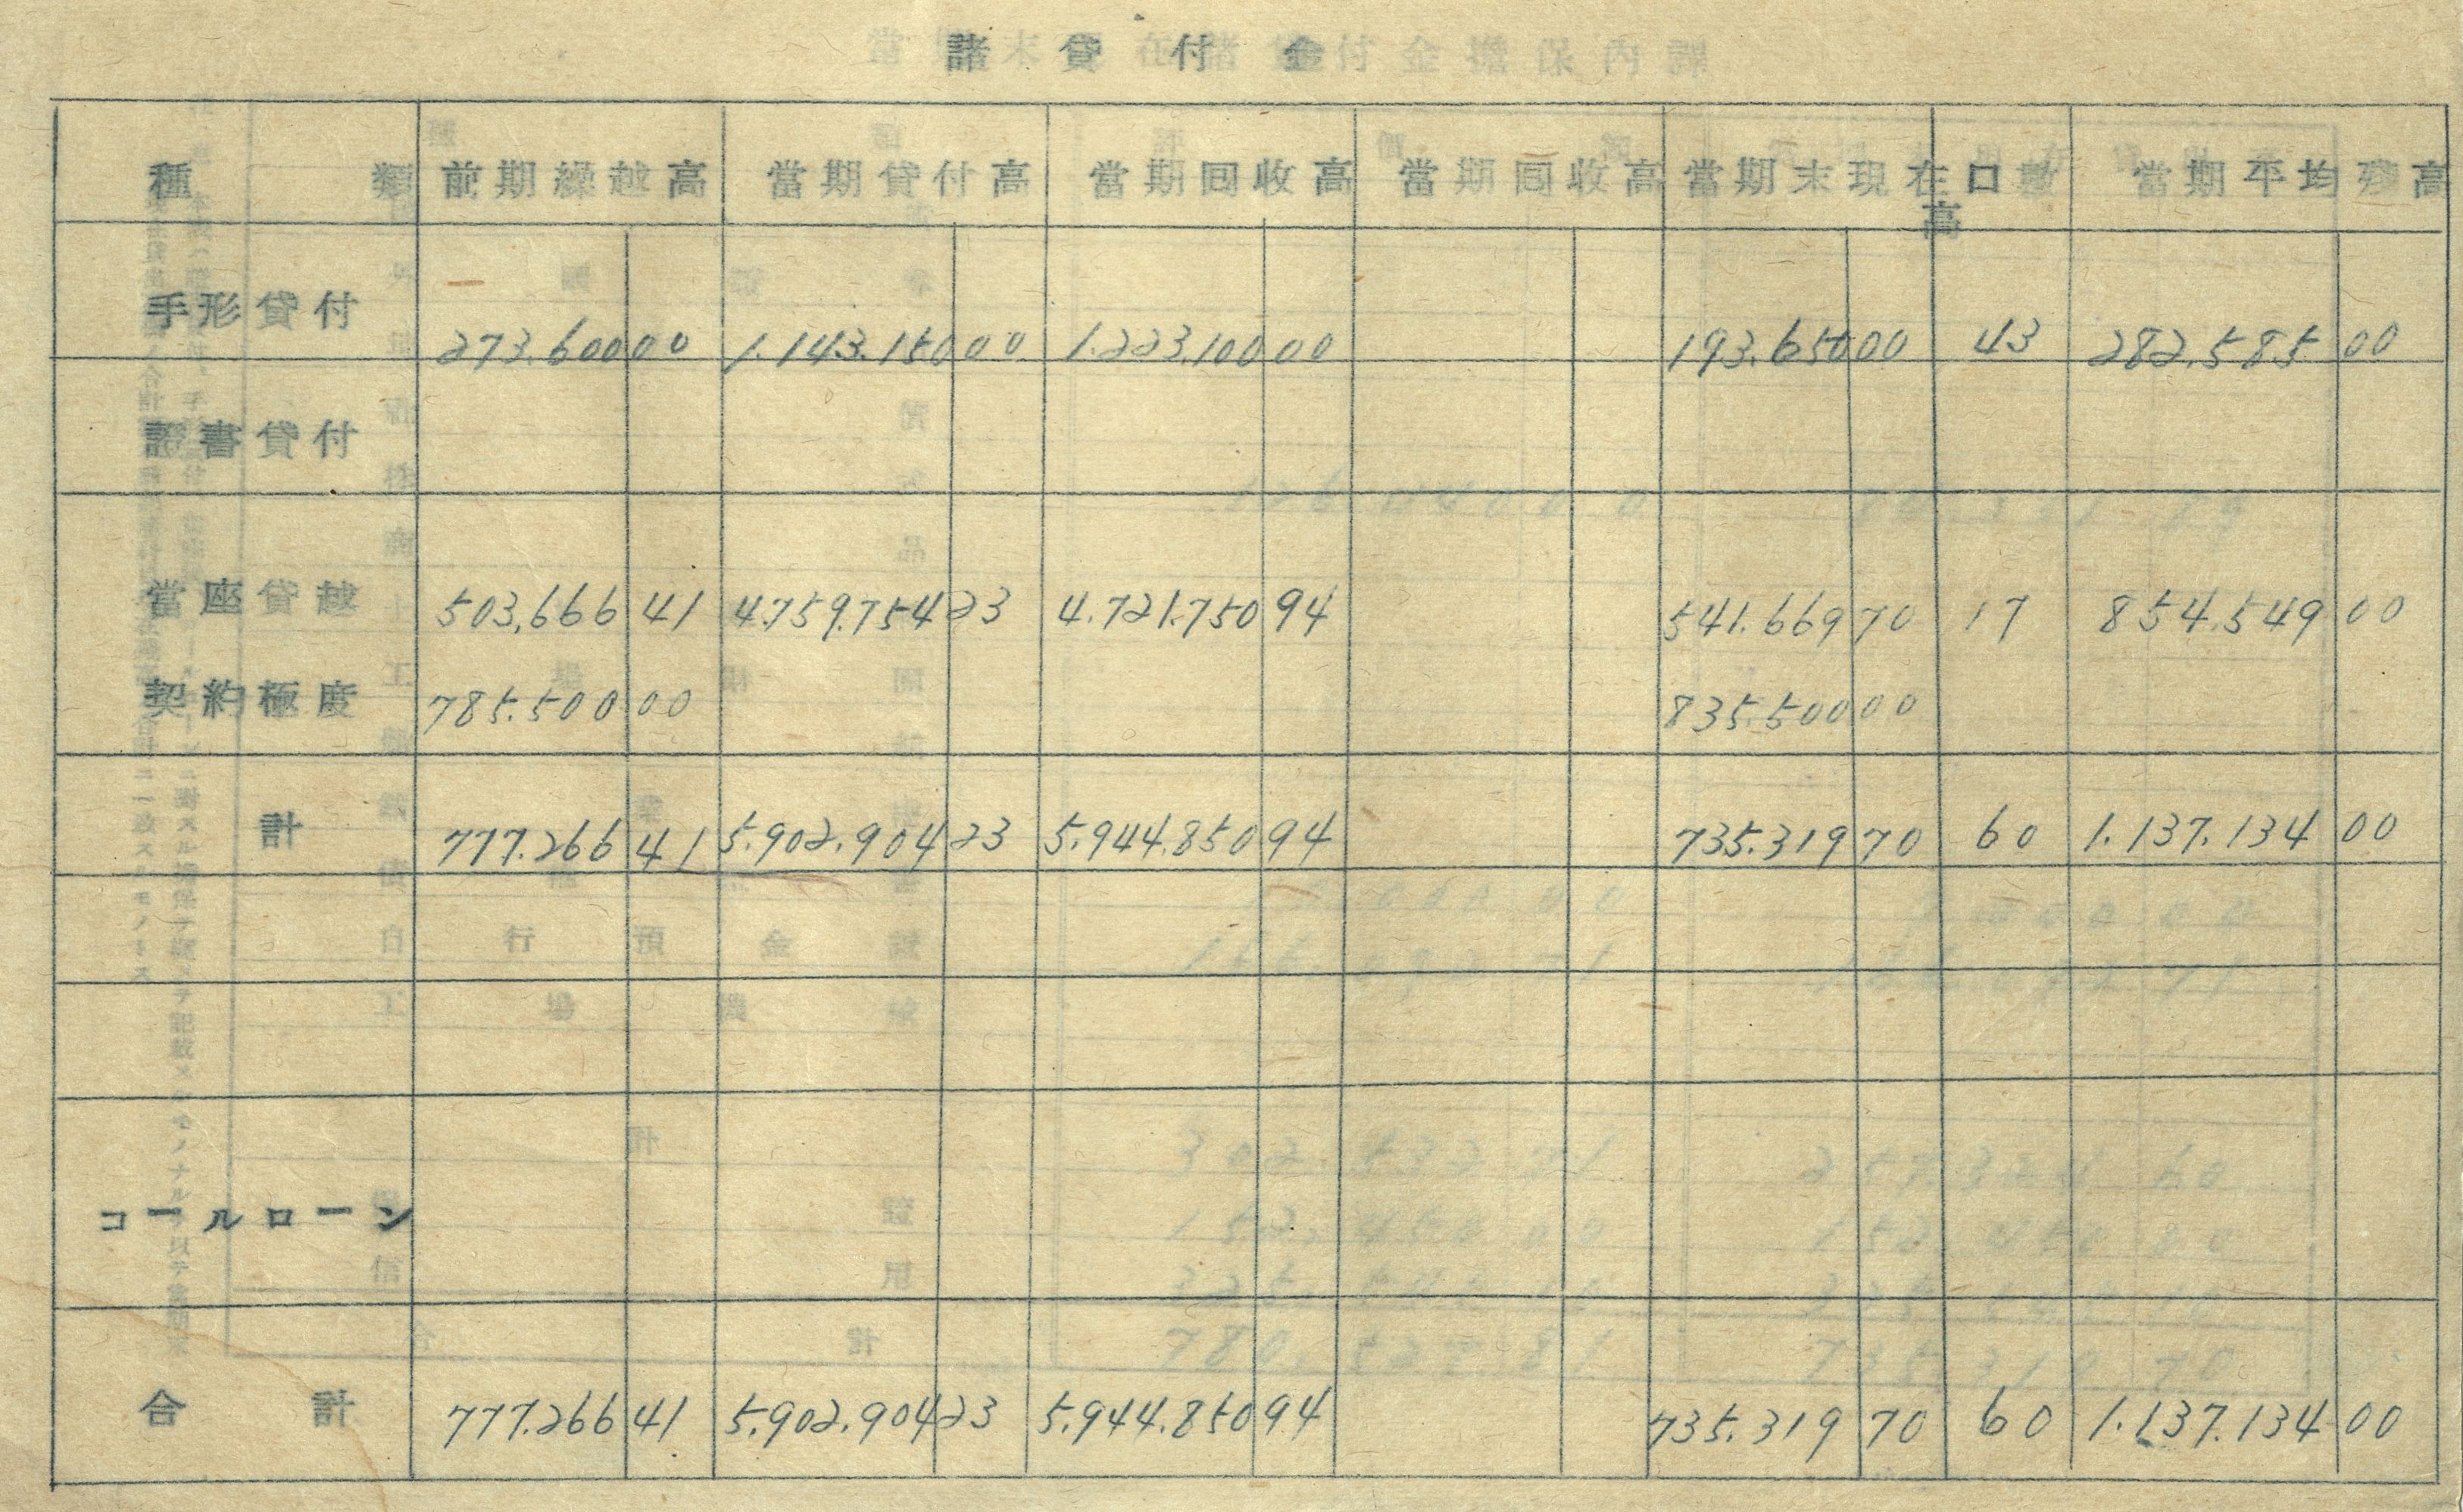 諸貸付金
種類 前期繰越高 當期貸付高 當期回收高 當期回收高 當期末現在高 口數 當期平均殘高
手形貸付 273.600 00 1.143.150 00 1.223.100 00 193.650 00 43 282.585 00
證書貸付
當座貸越 503,666 41 4.759.754 23 4.721.750 94 541.669 70 17 854.549 00
契約極度 785.500 00 835.500 00
計 777.266 41 5.902.904 23 5.944.850 94 735.319 70 60 1.137.134 00
コールローン
合計 777.266 41 5.902.904 23 5.944.850 94 735.319 70 60 1.137.134 00